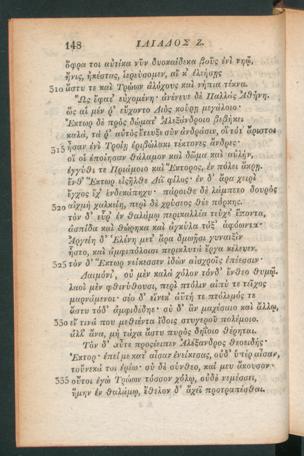 148 ΙΛΙΑΔΟΣ Ζ.
ὄφρα τοι αὐτίκα νῦν δυοκαίδεκα βοῦς ἐνὶ νηῷ,
ἤνις, ἠκέστας, ἱερεύσομεν, αἴ κ' ἐλεήσῃς
310 ἄστυ τε καὶ Τρώων ἀλόχους καὶ νήπια τέκνα.
Ὣς ἔφατ' εὐχομένη· ἀνένευε δὲ Παλλὰς Ἀθήνη.
ὣς αἱ μέν ῥ' εὔχοντο Διὸς κούρῃ μεγάλοιο·
Ἕκτωρ δὲ πρὸς δώματ' Ἀλεξάνδροιο βεβήκει
καλά, τά ῥ' αὐτὸς ἔτευξε σὺν ἀνδράσιν, οἳ τότ' ἄριστοι
315 ἦσαν ἐνὶ Τροίῃ ἐριβώλακι τέκτονες ἄνδρες·
οἵ οἱ ἐποίησαν θάλαμον καὶ δῶμα καὶ αὐλήν,
ἐγγύθι τε Πριάμοιο καὶ Ἕκτορος, ἐν πόλει ἄκρῃ.
ἔνθ' Ἕκτωρ εἰσῆλθε Διῒ φίλος· ἐν δ' ἄρα χειρὶ
ἔγχος ἔχ' ἑνδεκάπηχυ· πάροιθε δὲ λάμπετο δουρὸς
320 αἰχμὴ χαλκείη, περὶ δὲ χρύσεος θέε πόρκης.
τὸν δ' εὗρ' ἐν θαλάμῳ περικαλλέα τεύχε' ἕποντα,
ἀσπίδα καὶ θώρηκα καὶ ἀγκύλα τόξ' ἁφόωντα·
Ἀργείη δ' Ἑλένη μετ' ἄρα δμωῇσι γυναιξὶν
ἧστο, καὶ ἀμφιπόλοισι περικλυτὰ ἔργα κέλευεν.
325 τὸν δ' Ἕκτωρ νείκεσσεν ἰδὼν αἰσχροῖς ἐπέεσσιν·
Δαιμόνι', οὐ μὲν καλὰ χόλον τόνδ' ἔνθεο θυμῷ.
λαοὶ μὲν φθινύθουσι, περὶ πτόλιν αἰπύ τε τεῖχος
μαρνάμενοι· σέο δ' εἵνεκ' ἀϋτή τε πτόλεμός τε
ἄστυ τόδ' ἀμφιδέδηε· σὺ δ' ἂν μαχέσαιο καὶ ἄλλῳ,
330 εἴ τινά που μεθιέντα ἴδοις στυγεροῦ πολέμοιο.
ἀλλ' ἄνα, μὴ τάχα ἄστυ πυρὸς δηΐοιο θέρηται.
Τὸν δ' αὖτε προσέειπεν Ἀλέξανδρος θεοειδής·
Ἕκτορ· ἐπεί με κατ' αἶσαν ἐνείκεσας, οὐδ' ὑπὲρ αἶσαν,
τοὔνεκά τοι ἐρέω· σὺ δὲ σύνθεο, καί μευ ἄκουσον·
335 οὔτοι ἐγὼ Τρώων τόσσον χόλῳ, οὐδὲ νεμέσσει,
ἥμην ἐν θαλάμῳ, ἔθελον δ' ἄχεϊ προτραπέσθαι.